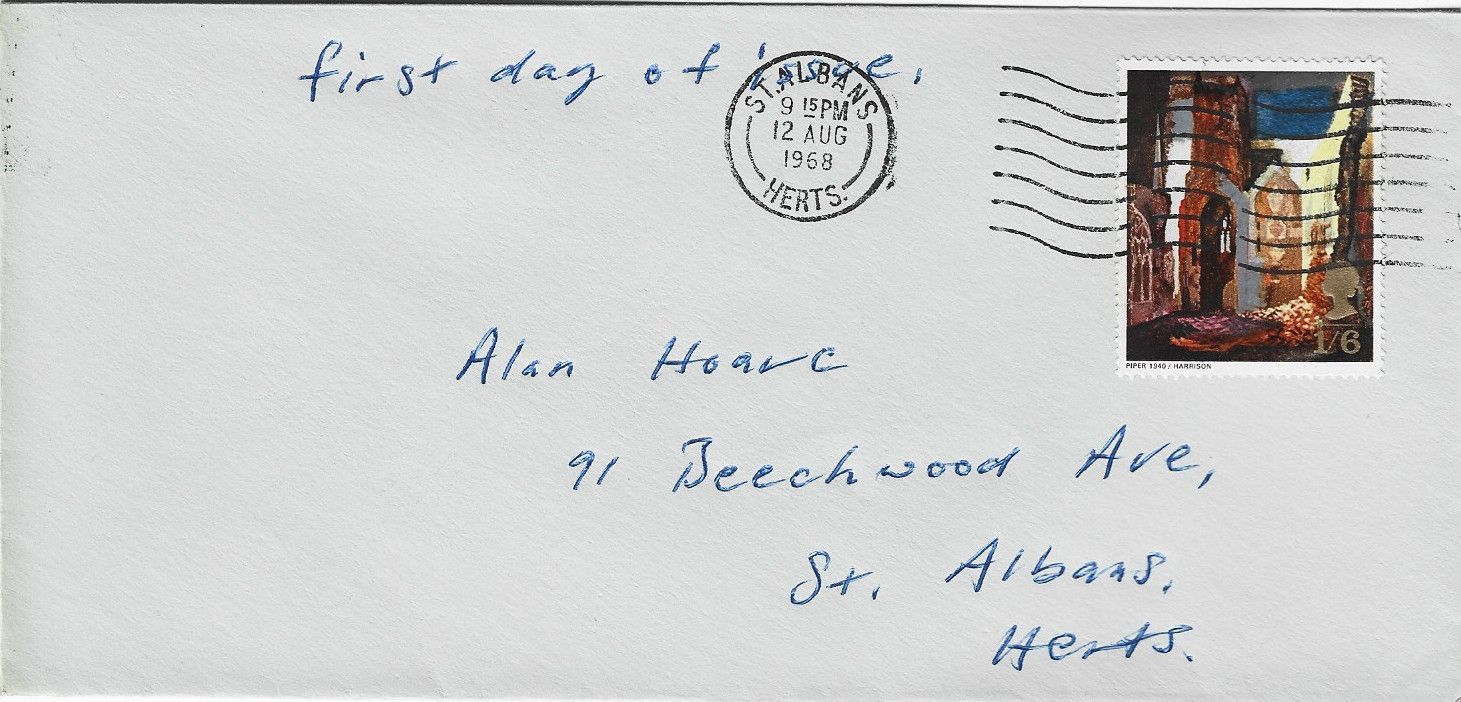 first day of issue.
ST. ALBANS
9 15 PM
12 AUG
1968
HERTS.
1/6
PIPER 1940 / HARRISON
Alan Hoare
91 Beechwood Ave,
St. Albans.
Herts.